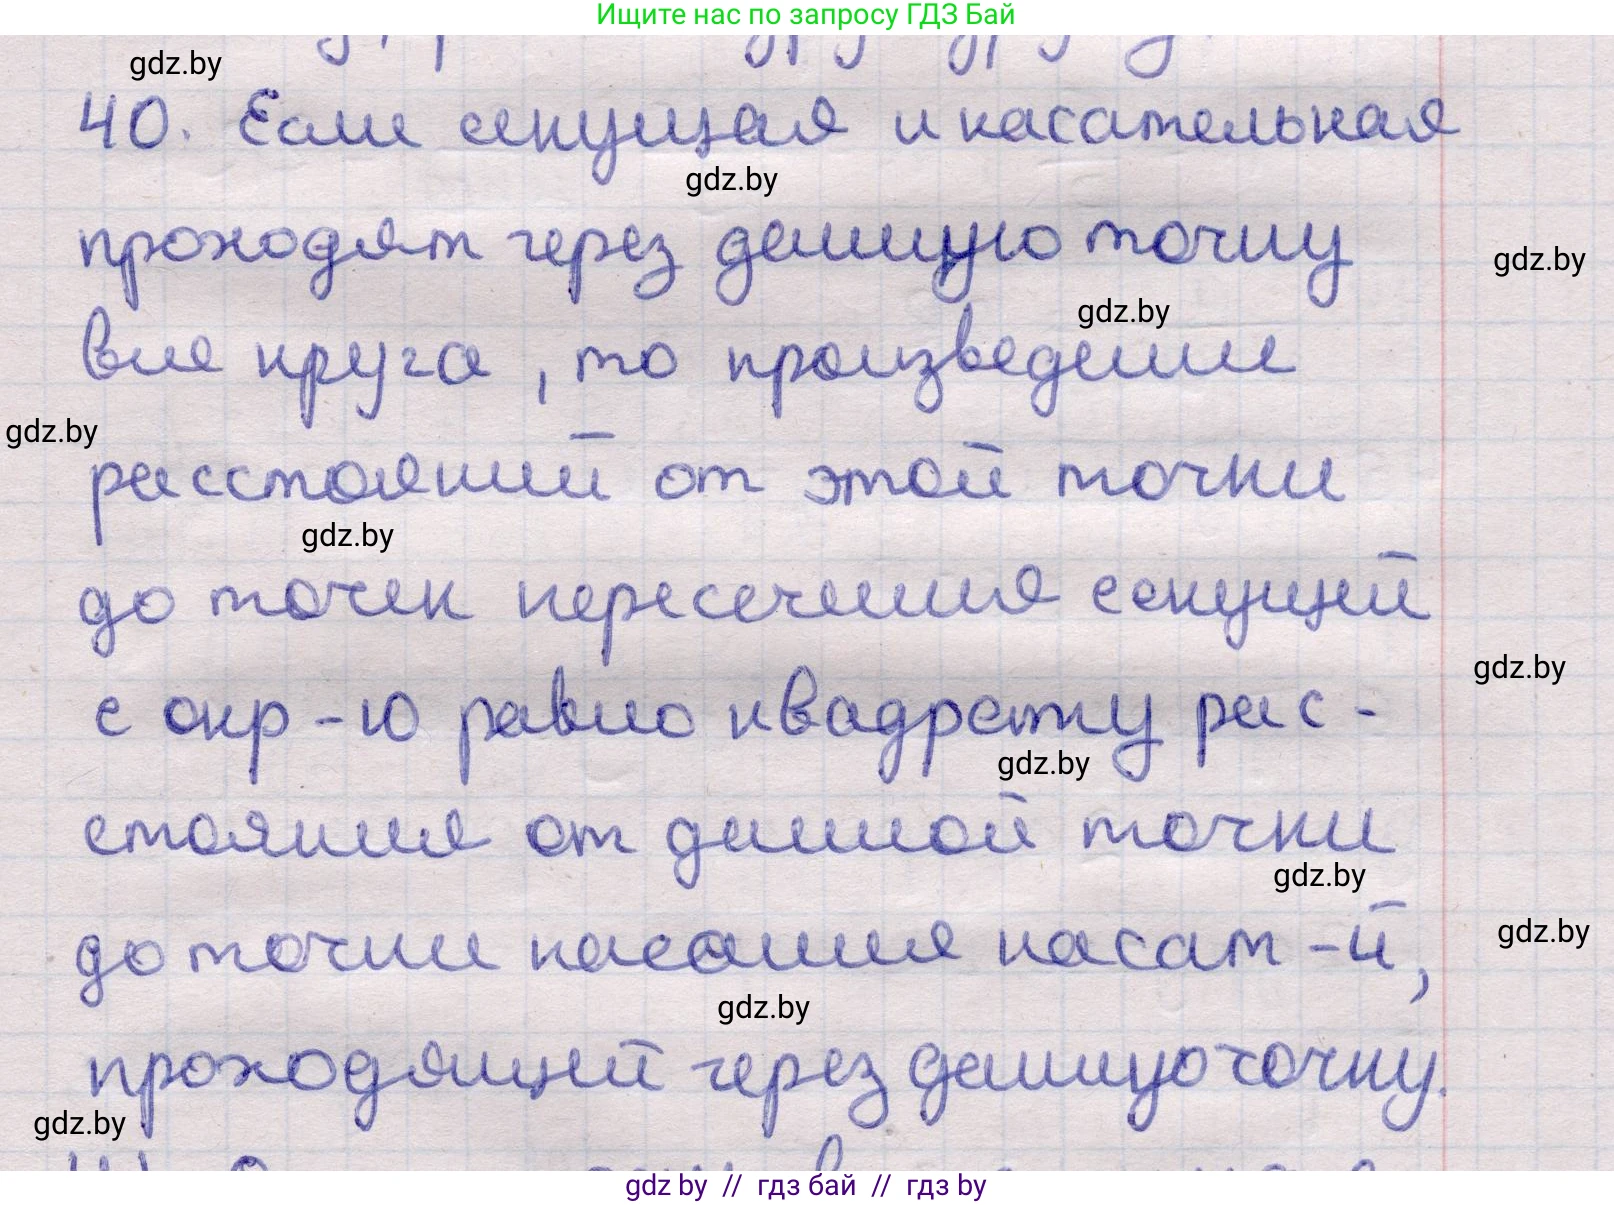 Ищите нас по запросу ГДЗ Бай
gdz.by
40. Если секущая и касательная
gdz.by
проходят через данную точку
gdz.by
gdz.by
вне круга, то произведение
gdz.by
расстояний от этой точки
gdz.by
до точек пересечения секущей
gdz.by
с окр-ю равно квадрату рас-
gdz.by
стояния от данной точки
gdz.by
до точки касания касат-й,
gdz.by
gdz.by
проходящей через данную точку.
gdz.by
gdz by // гдз бай // гдз by